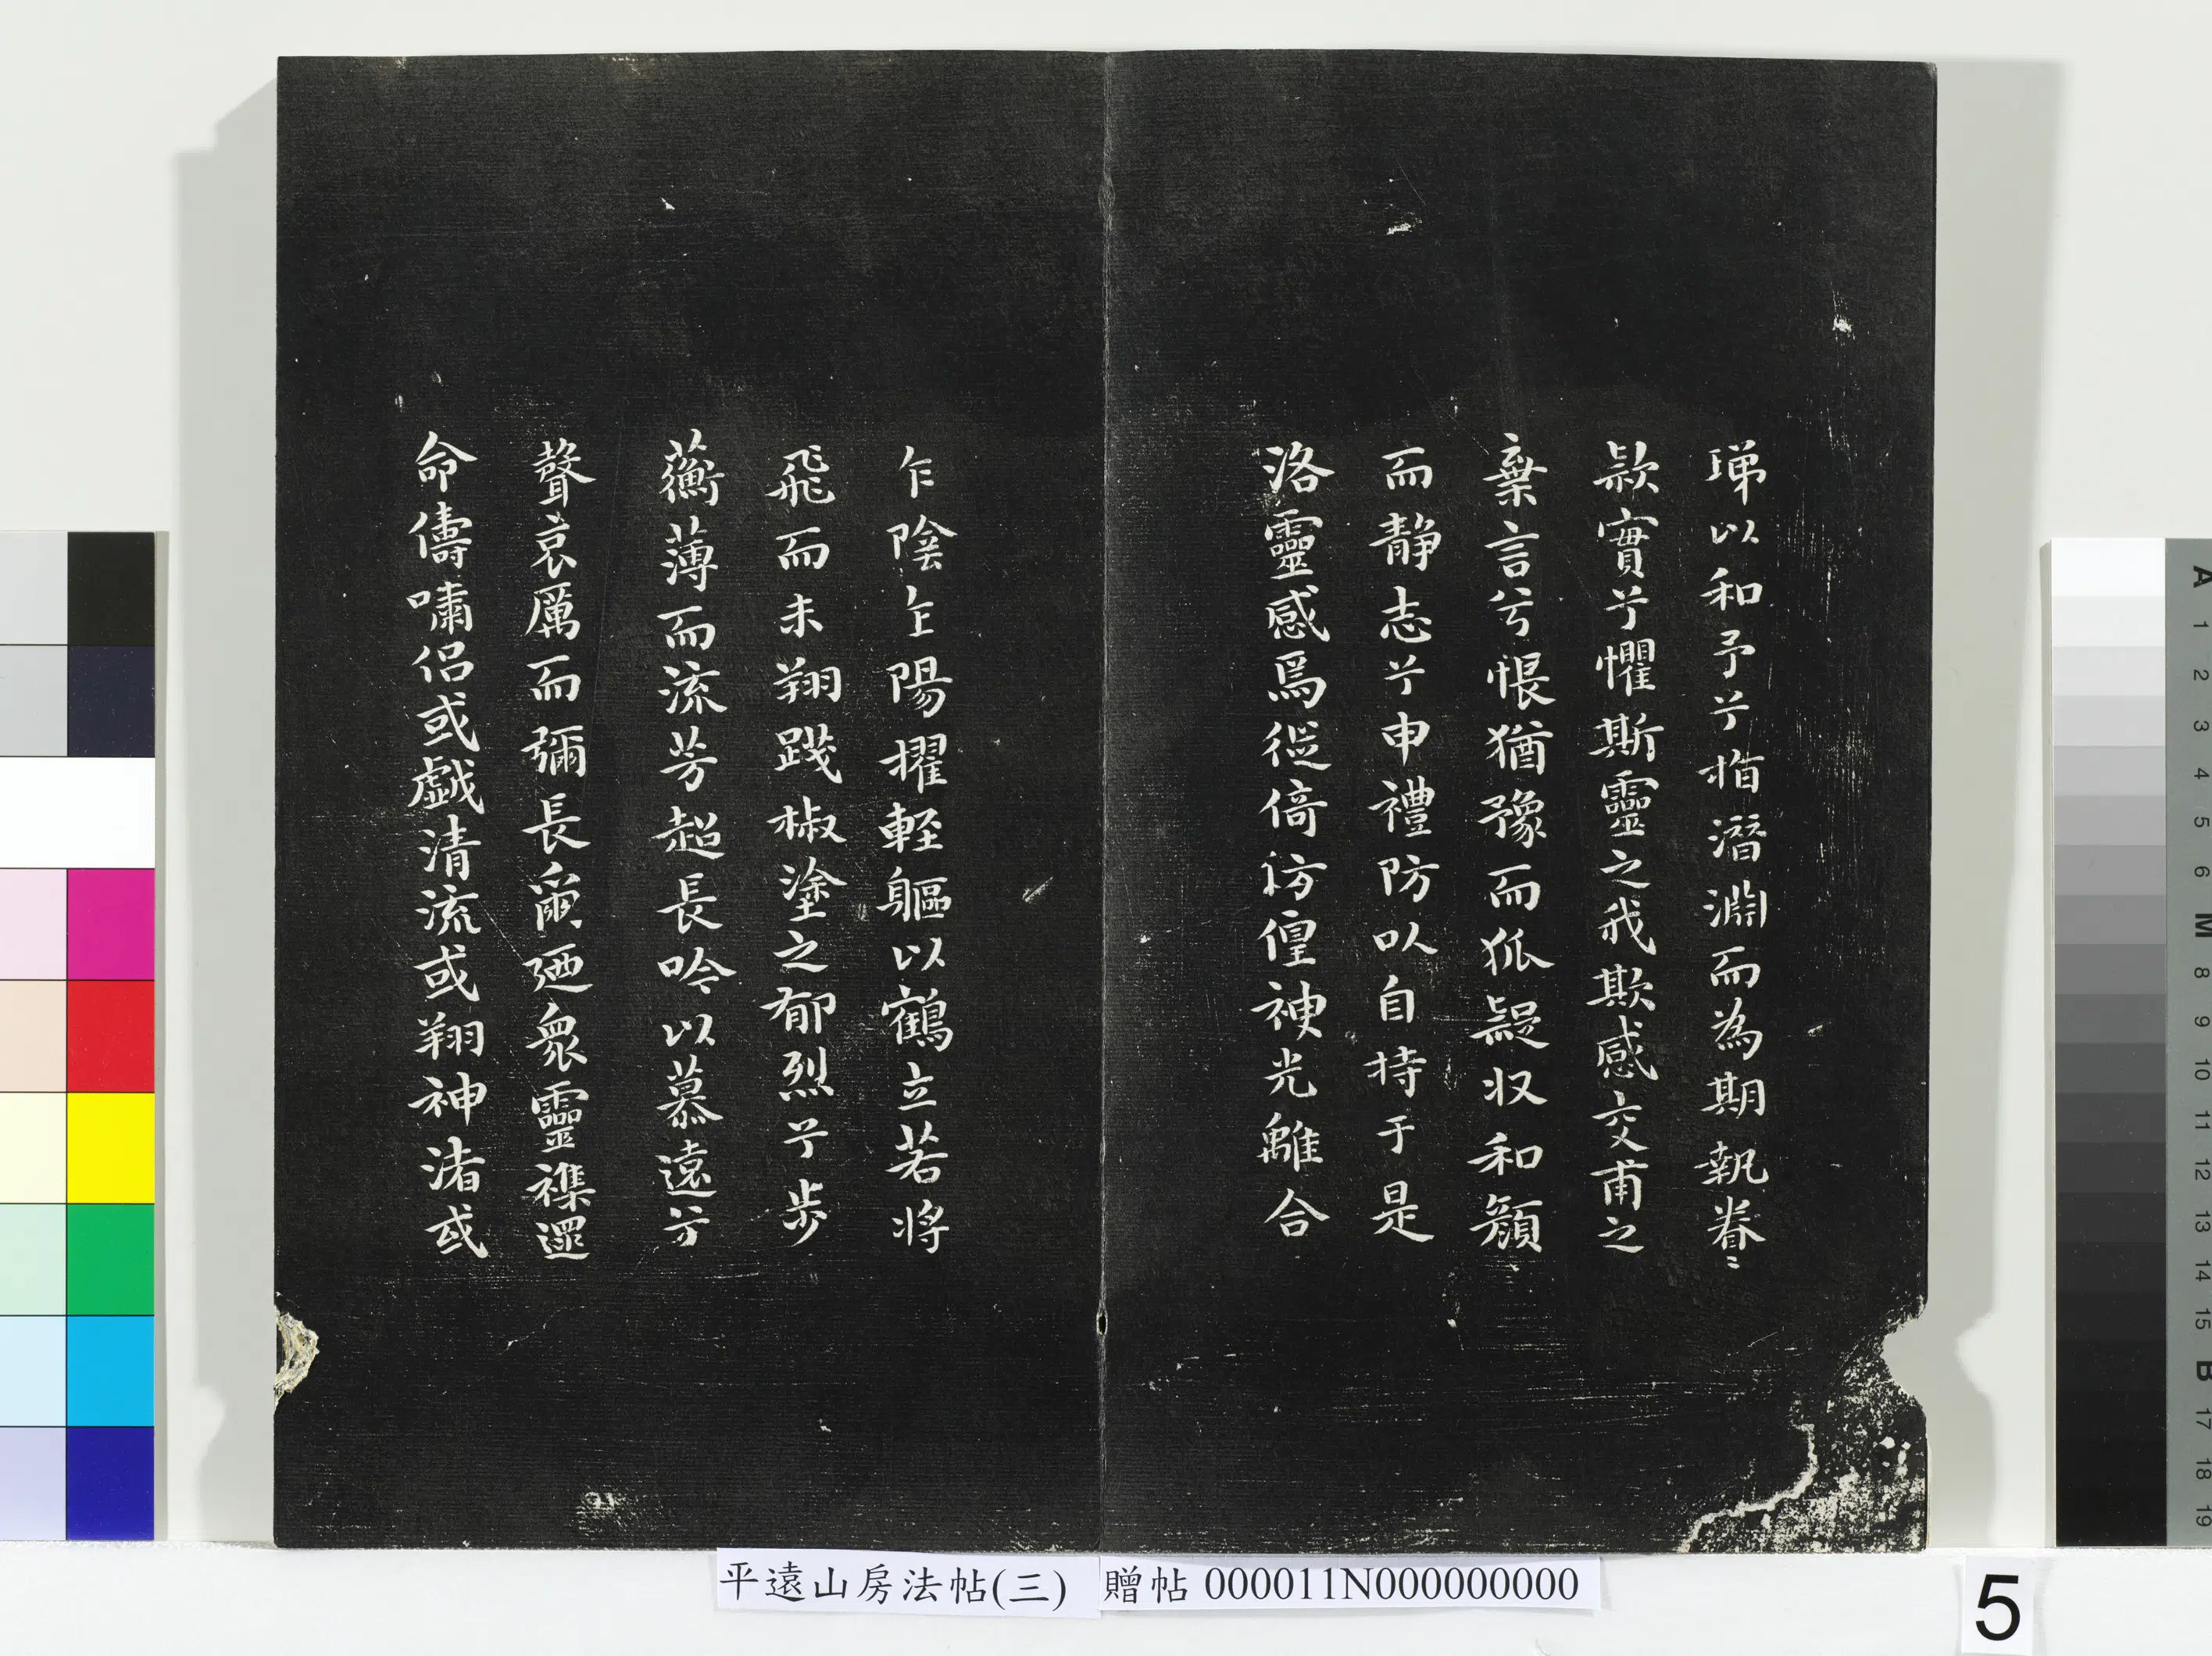 珶以和予兮指潛淵而為期執眷〻
款實兮懼斯靈之我欺感交甫之
棄言兮悵猶豫而狐疑収和顏
而静志兮申禮防以自持于是
洛靈感焉徙倚彷徨神光離合
乍陰乍陽擢軽軀以鶴立若將
飛而未翔踐椒塗之郁烈兮步
蘅薄而流芳超長吟以慕遠兮
聲哀厲而彌長爾迺衆靈襍遝
命儔嘯侶或戲清流或翔神渚或
平遠山房法帖(三) 贈帖 000011N000000000
5
A
1
2
3
4
5
6
M
8
9
10
11
12
13
14
15
B
17
18
19